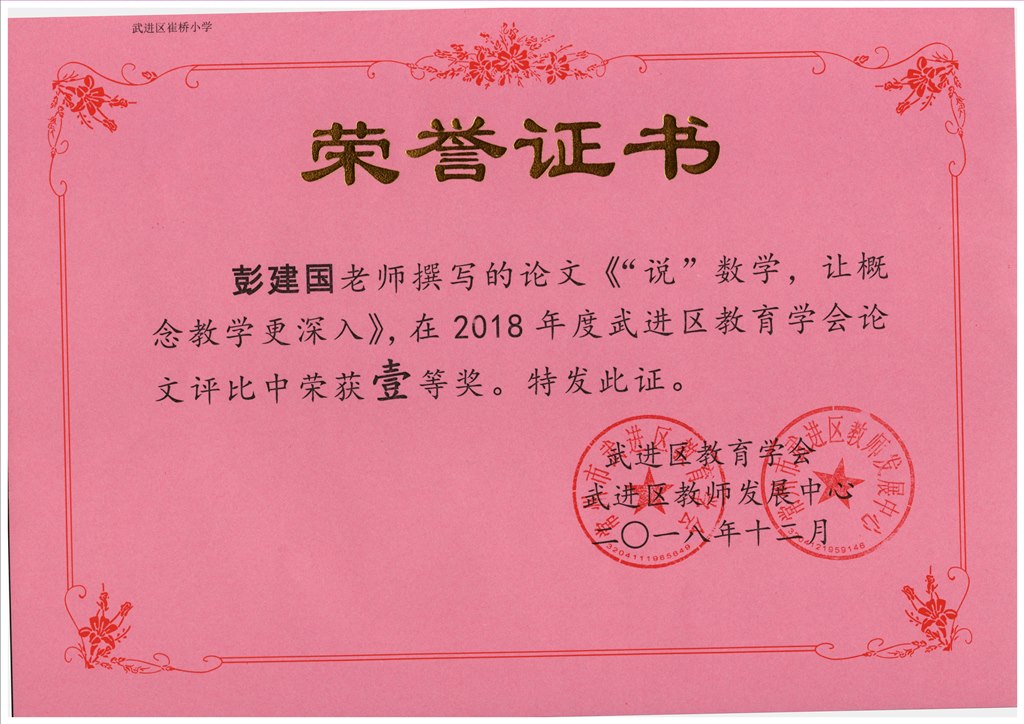 武进区崔桥小学
荣誉证书
彭建国老师撰写的论文《“说”数学，让概
念教学更深入》，在2018年度武进区教育学会论
文评比中荣获壹等奖。特发此证。
武进区教育学会
武进区教师发展中心
二〇一八年十二月
常州市武进区教育学会
常州市武进区教师发展中心